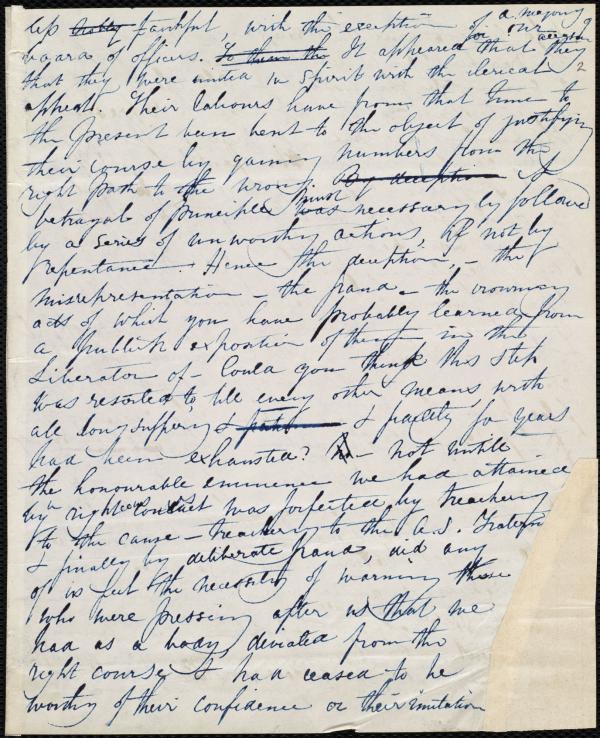 less faithful, with the exception of a majority of our
board of officers. To them the It appeared at the
that they were united in spirit with the clerical
appeal. Their labours have from that time to
the present been bent to the object of justifying
their course by gaining numbers from the
right path to the wrong. By deception A
betrayal of principle must was necessarily followed
by a series of unworthy actions, if not by
repentance. Hence the deception, - the
misrepresentation - the fraud - the crowning
acts of which you have probably learned from
a publick exposition of them in the
Liberator of - Could you think this step
was resorted to, till every other means with
all long suffering & & fidelity for years
had been exhausted? No - not untill
the honourable eminence we had attained
by righteous conduct was forfeited by treachery
to the cause - treachery to the A.S. Fraternity
& finally by deliberate fraud, did any
of us feel the necessity of warning those
who were pressing after us that we
had as a body deviated from the
right course & had ceased to be
worthy of their confidence or their imitation